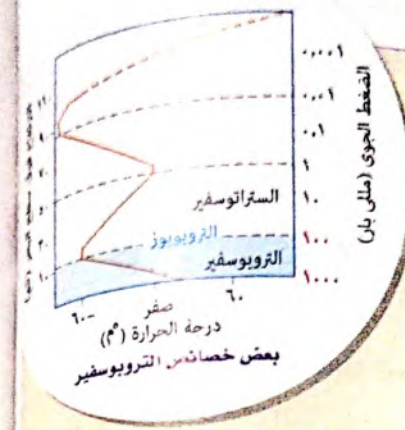 الضغط الجوى (مللى بار)
٠,٠٠١
٠,٠١
٠,١
١
١٠
١٠٠
١٠٠٠
الستراتوسفير
التروبوبوز
التروبوسفير
١١٠
٩٠
٧٠
٥٠
٣٠
١٠
٦٠-
صفر
٦٠
درجة الحرارة (°م)
بعض خصائص التروبوسفير